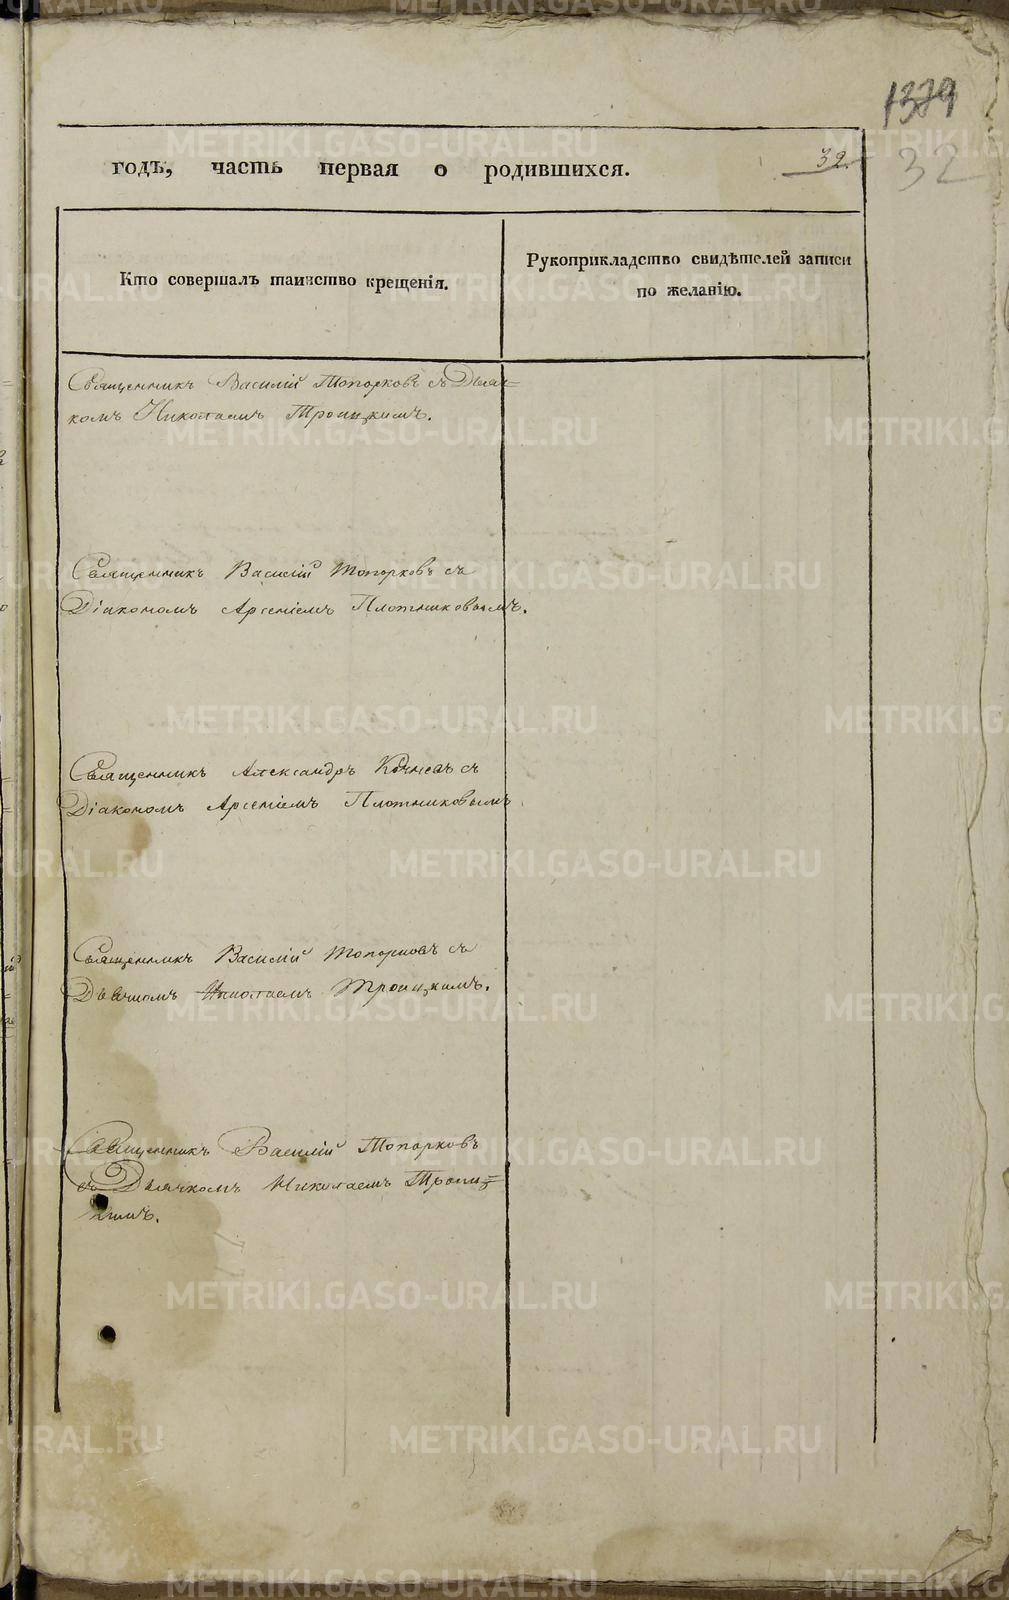 1379
годъ, часть первая о родившихся.
32.
32
Кто совершалъ таинство крещенія.
Рукоприкладство свидѣтелей записи
по желанію.
Священникъ Василій Топорковъ съ Дьяч=
комъ Николаемъ Троицкимъ.
Священникъ Василій Топорковъ съ
Діакономъ Арсеніемъ Плотниковымъ.
Священникъ Александръ съ
Діакономъ Арсеніемъ Плотниковымъ
Священникъ Василій Топорковъ съ
Дьячкомъ Николаемъ Троицкимъ.
Священникъ Василій Топорковъ
съ Дьячкомъ Николаемъ Троиц=
кимъ.
METRIKI.GASO-URAL.RU